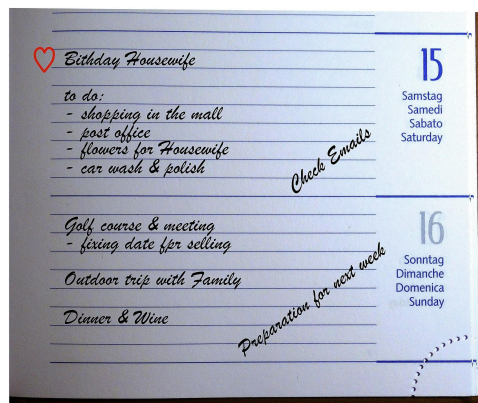 Bithday Housewife
15
to do:
- shopping in the mall
- post office
- flowers for Housewife
- car wash & polish
Check Emails
Samstag
Samedi
Sabato
Saturday
Golf course & meeting
- fixing date fpr selling
Outdoor trip with Family
Dinner & Wine
Preparation for next week
16
Sonntag
Dimanche
Domenica
Sunday